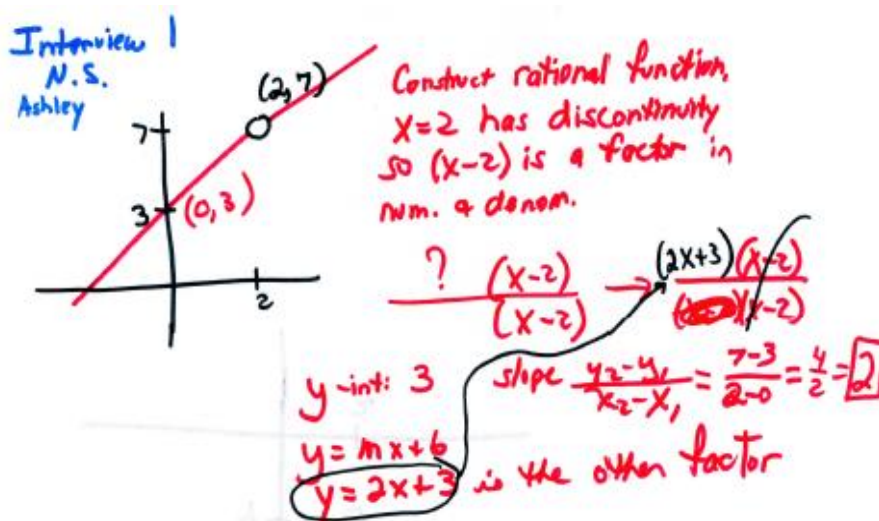 Interview 1
N.S.
Ashley
(2,7)
7
3
(0,3)
2
Construct rational function.
x=2 has discontinuity
so (x-2) is a factor in
num. & denom.
? (x-2)
(x-2)
→
(2x+3)(x-2)
(x-2)
y-int: 3
slope y₂-y₁/x₂-x₁ = 7-3/2-0 = 4/2 = 2
y=mx+b
y=2x+3 is the other factor